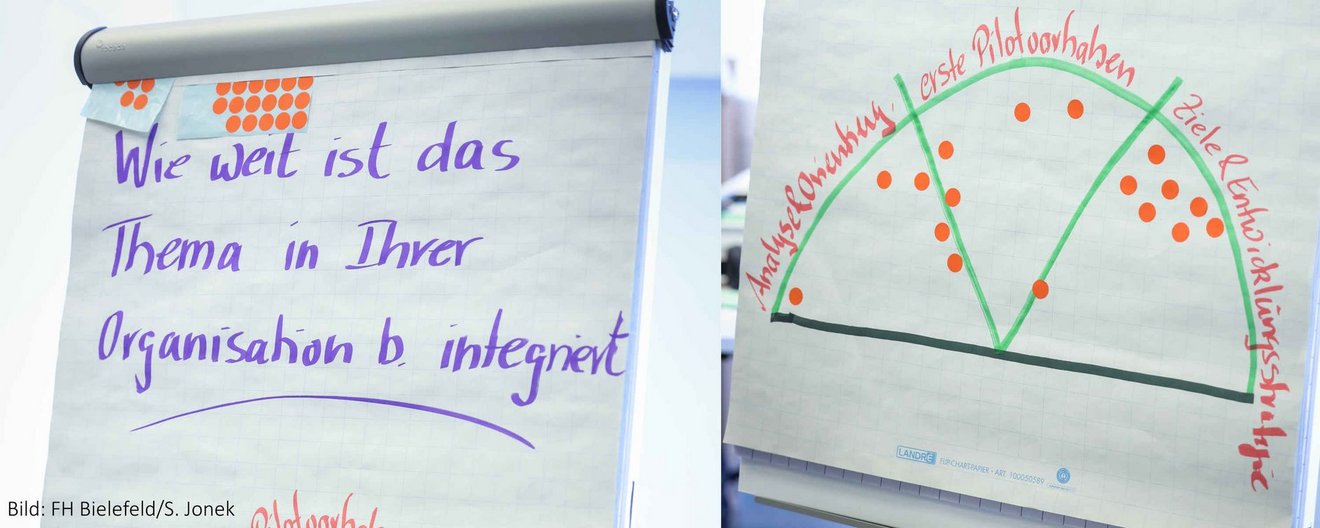 Wie weit ist das
Thema in Ihrer
Organisation b. integriert
Pilotvorhaben
Bild: FH Bielefeld/S. Jonek
Analyse & Orientierung
erste Pilotvorhaben
Ziele & Entwicklungsstrategie
LANDRÉ FLIP-CHART-PAPIER • ART. 100050589